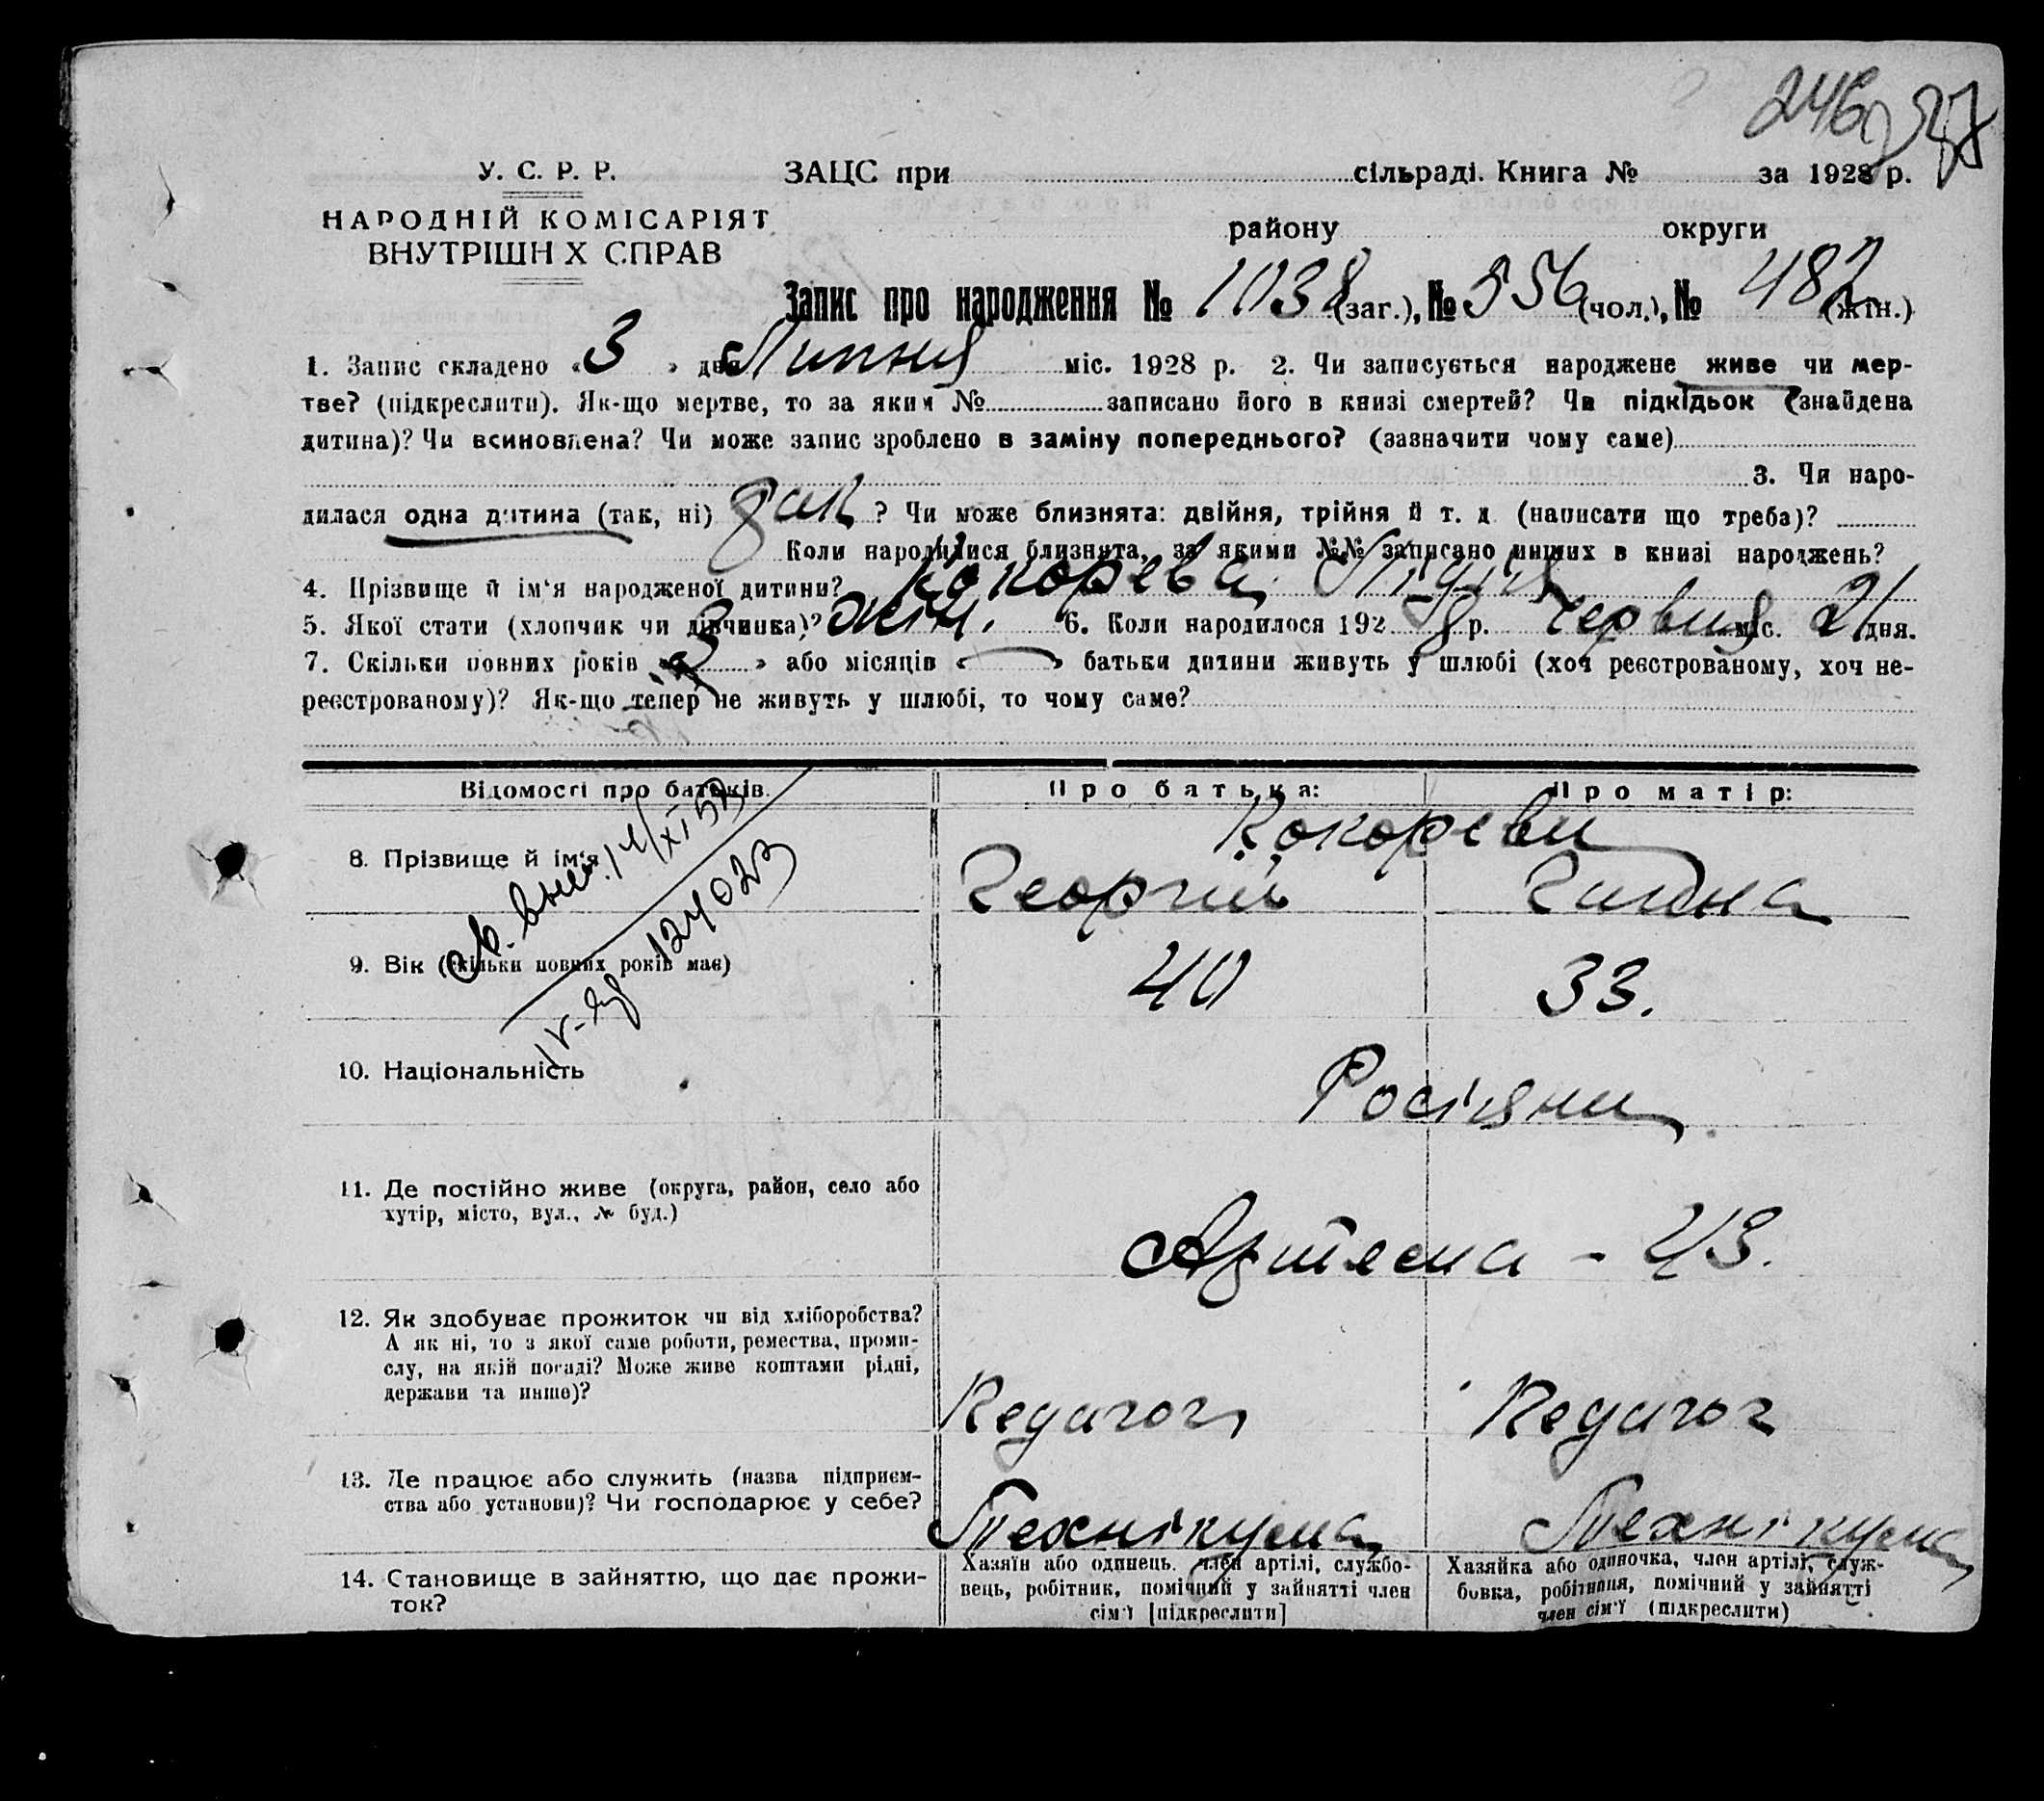 246
У. С. Р. Р.
НАРОДНІЙ КОМІСАРІЯТ
ВНУТРІШН Х СПРАВ
ЗАЦС при сільраді. Книга № за 1928 р.
району округи
Запис про народження № 1038 (заг.), № 556 (чол.), № 482 (жін.)
1. Запис складено « 3 » дня Липня міс. 1928 р. 2. Чи записується народжене живе чи мер-
тве? (підкреслити). Як-що мертве, то за яким № записано його в книзі смертей? Чи підкідьок (знайдена
дитина)? Чи всиновлена? Чи може запис зроблено в заміну попереднього? (зазначити чому саме)
3. Чи наро-
дилася одна дитина (так, ні) так ? Чи може близнята: двійня, трійня й т. д. (написати що треба)?
Коли народилися близнята, за якими №№ записано инших в книзі народжень?
4. Прізвище й ім'я народженої дитини? Кокорева
5. Якої стати (хлопчик чи дівчинка)? жін. 6. Коли народилося 192 8 р. Червня міс. 21 дня.
7. Скільки повних років « » або місяців « — » батьки дитини живуть у шлюбі (хоч реєстрованому, хоч не-
реєстрованому)? Як-що тепер не живуть у шлюбі, то чому саме?
Відомості про батьків. Про батька: Про матір:
8. Прізвище й ім'я Кокореви
Георгій
9. Вік (скільки повних років має) 40 33.
10. Національність Росіяни
11. Де постійно живе (округа, район, село або
хутір, місто, вул., № буд.)
Артема - 43.
12. Як здобуває прожиток чи від хліборобства?
А як ні, то з якої саме роботи, ремества, проми-
слу, на якій посаді? Може живе коштами рідні,
держави та инше)?
Педагог Педагог
13. Де працює або служить (назва підприєм-
ства або установи)? Чи господарює у себе?
Технікума Технікума
14. Становище в зайняттю, що дає прожи-
ток?
Хазяїн або одинець. член артілі, службо-
вець, робітник, помічний у зайнятті член
сім'ї [підкреслити]
Хазяйка або одиночка, член артілі, служ-
бовка, робітниця, помічний у зайнятті
член сім'ї (підкреслити)